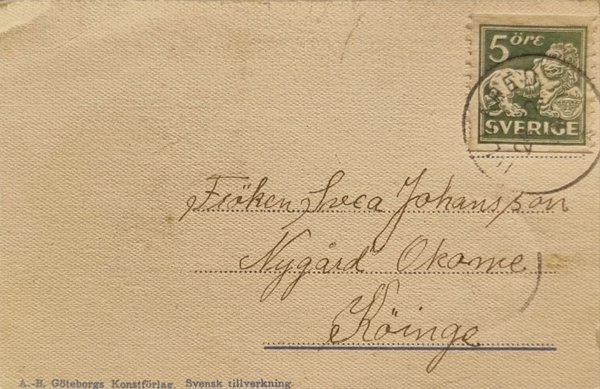 5 öre
SVERIGE
Fröken Svea Johansson
Nygård Okome
Köinge
A.-B. Göteborgs Konstförlag. Svensk tillverkning.